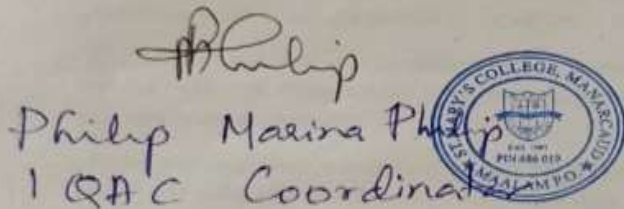 Philip
Philip Marina Philip
IQAC Coordinator
ST. MARY'S COLLEGE, MANARCAUD
PIN 686 019
MAALAM P.O.